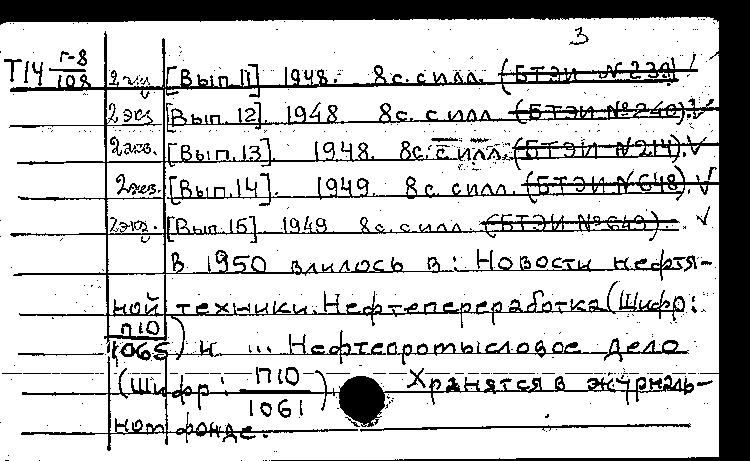 3
Т14 г-8/108 2 экз. [Вып. 11] 1948. 8с. с илл. (БТЭИ N 239) ✓
2 экз. [Вып. 12] 1948 8с. с илл. (БТЭИ № 240). ✓
2 экз. [Вып. 13] 1948. 8с. с илл. (БТЭИ N 214). ✓
2 экз. [Вып. 14] 1949. 8с. с илл. (БТЭИ N 648). ✓
2 экз. [Вып. 15] 1949 8с. с илл. (БТЭИ № 649). ✓
В 1950 влилось в: Новости нефтя-
ной техники. Нефтепереработка (Шифр:
П10/1065) и ... Нефтепромысловое дело
(Шифр: П10/1061). Хранятся в журналь-
ном фонде.